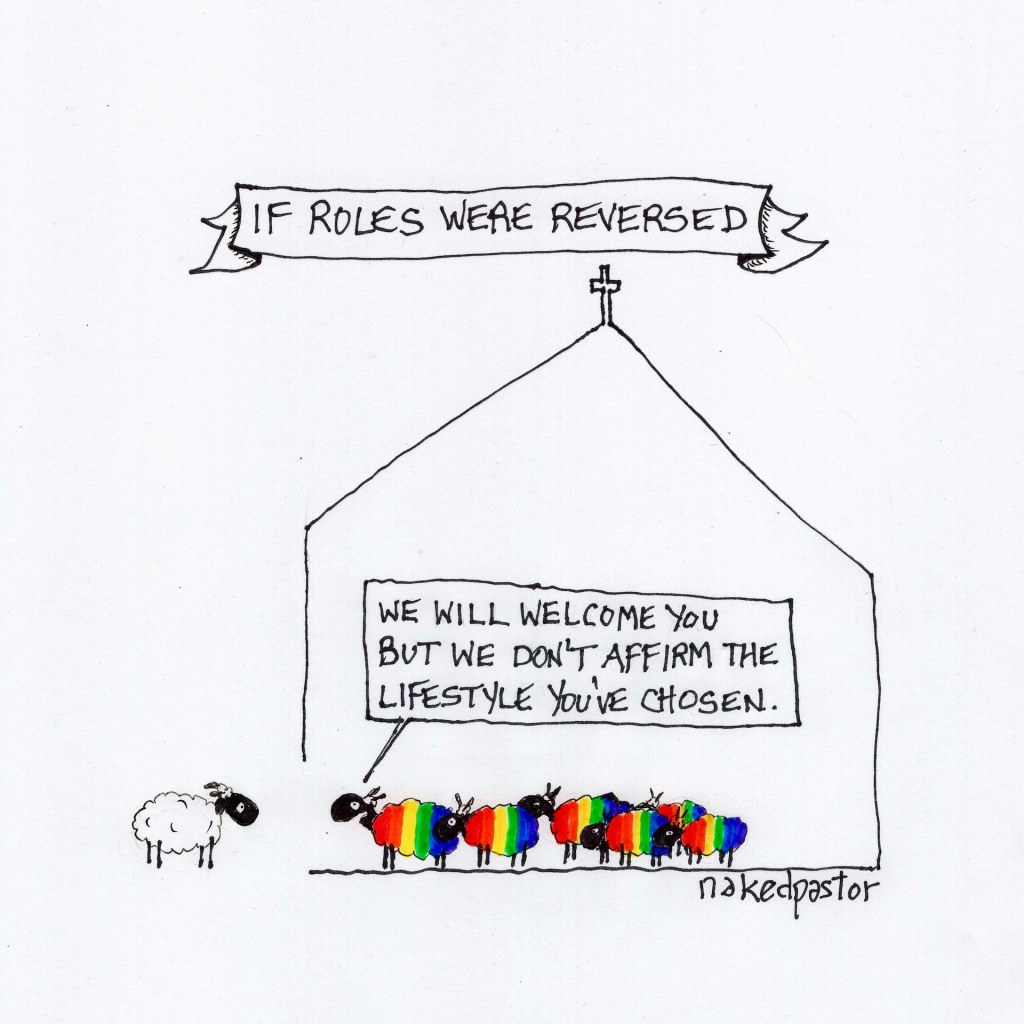 IF ROLES WERE REVERSED
WE WILL WELCOME YOU
BUT WE DON'T AFFIRM THE
LIFESTYLE YOU'VE CHOSEN.
nakedpastor